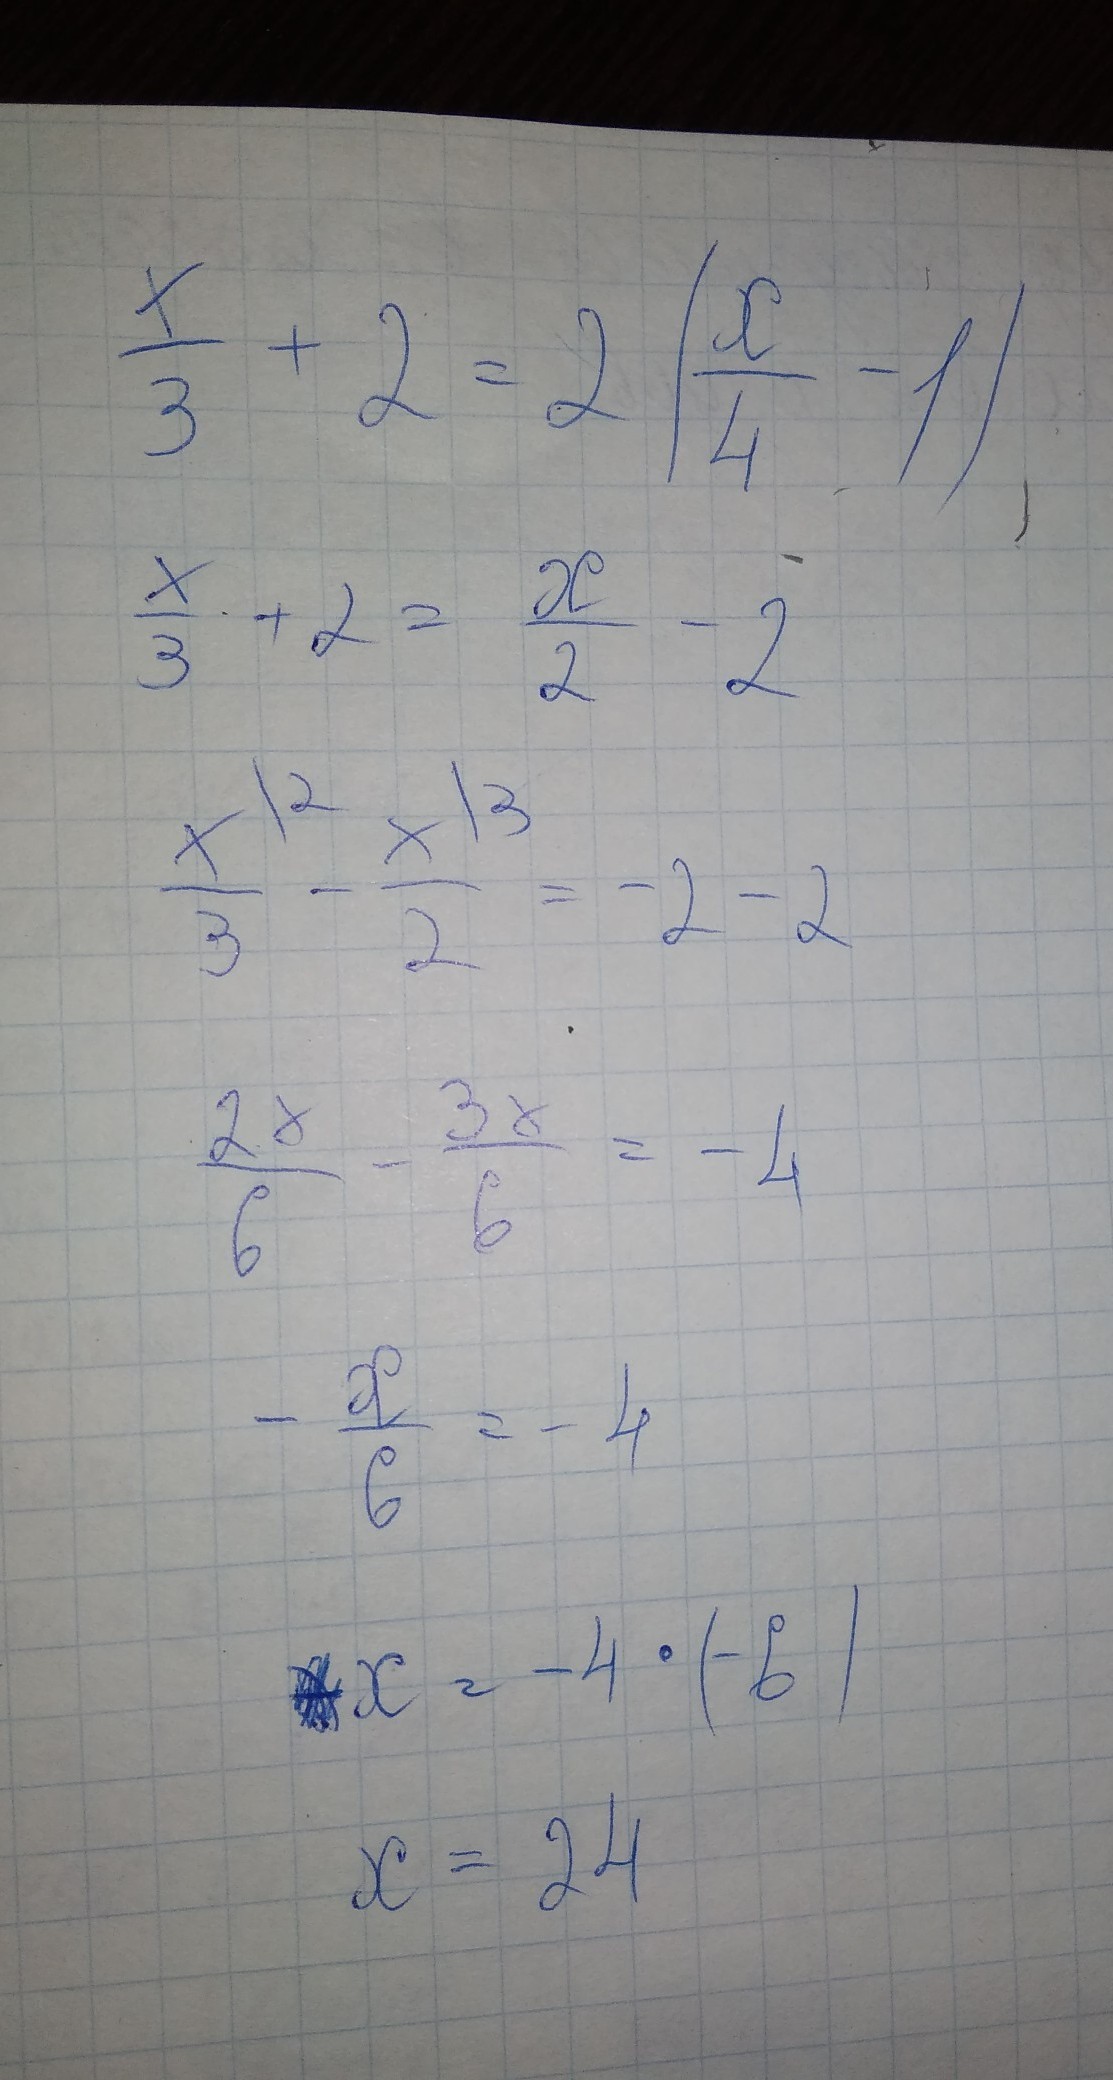 x/3 + 2 = 2(x/4 - 1)
x/3 + 2 = x/2 - 2
x\2/3 - x\3/2 = -2 - 2
2x/6 - 3x/6 = -4
- x/6 = -4
x = -4 · (-6)
x = 24